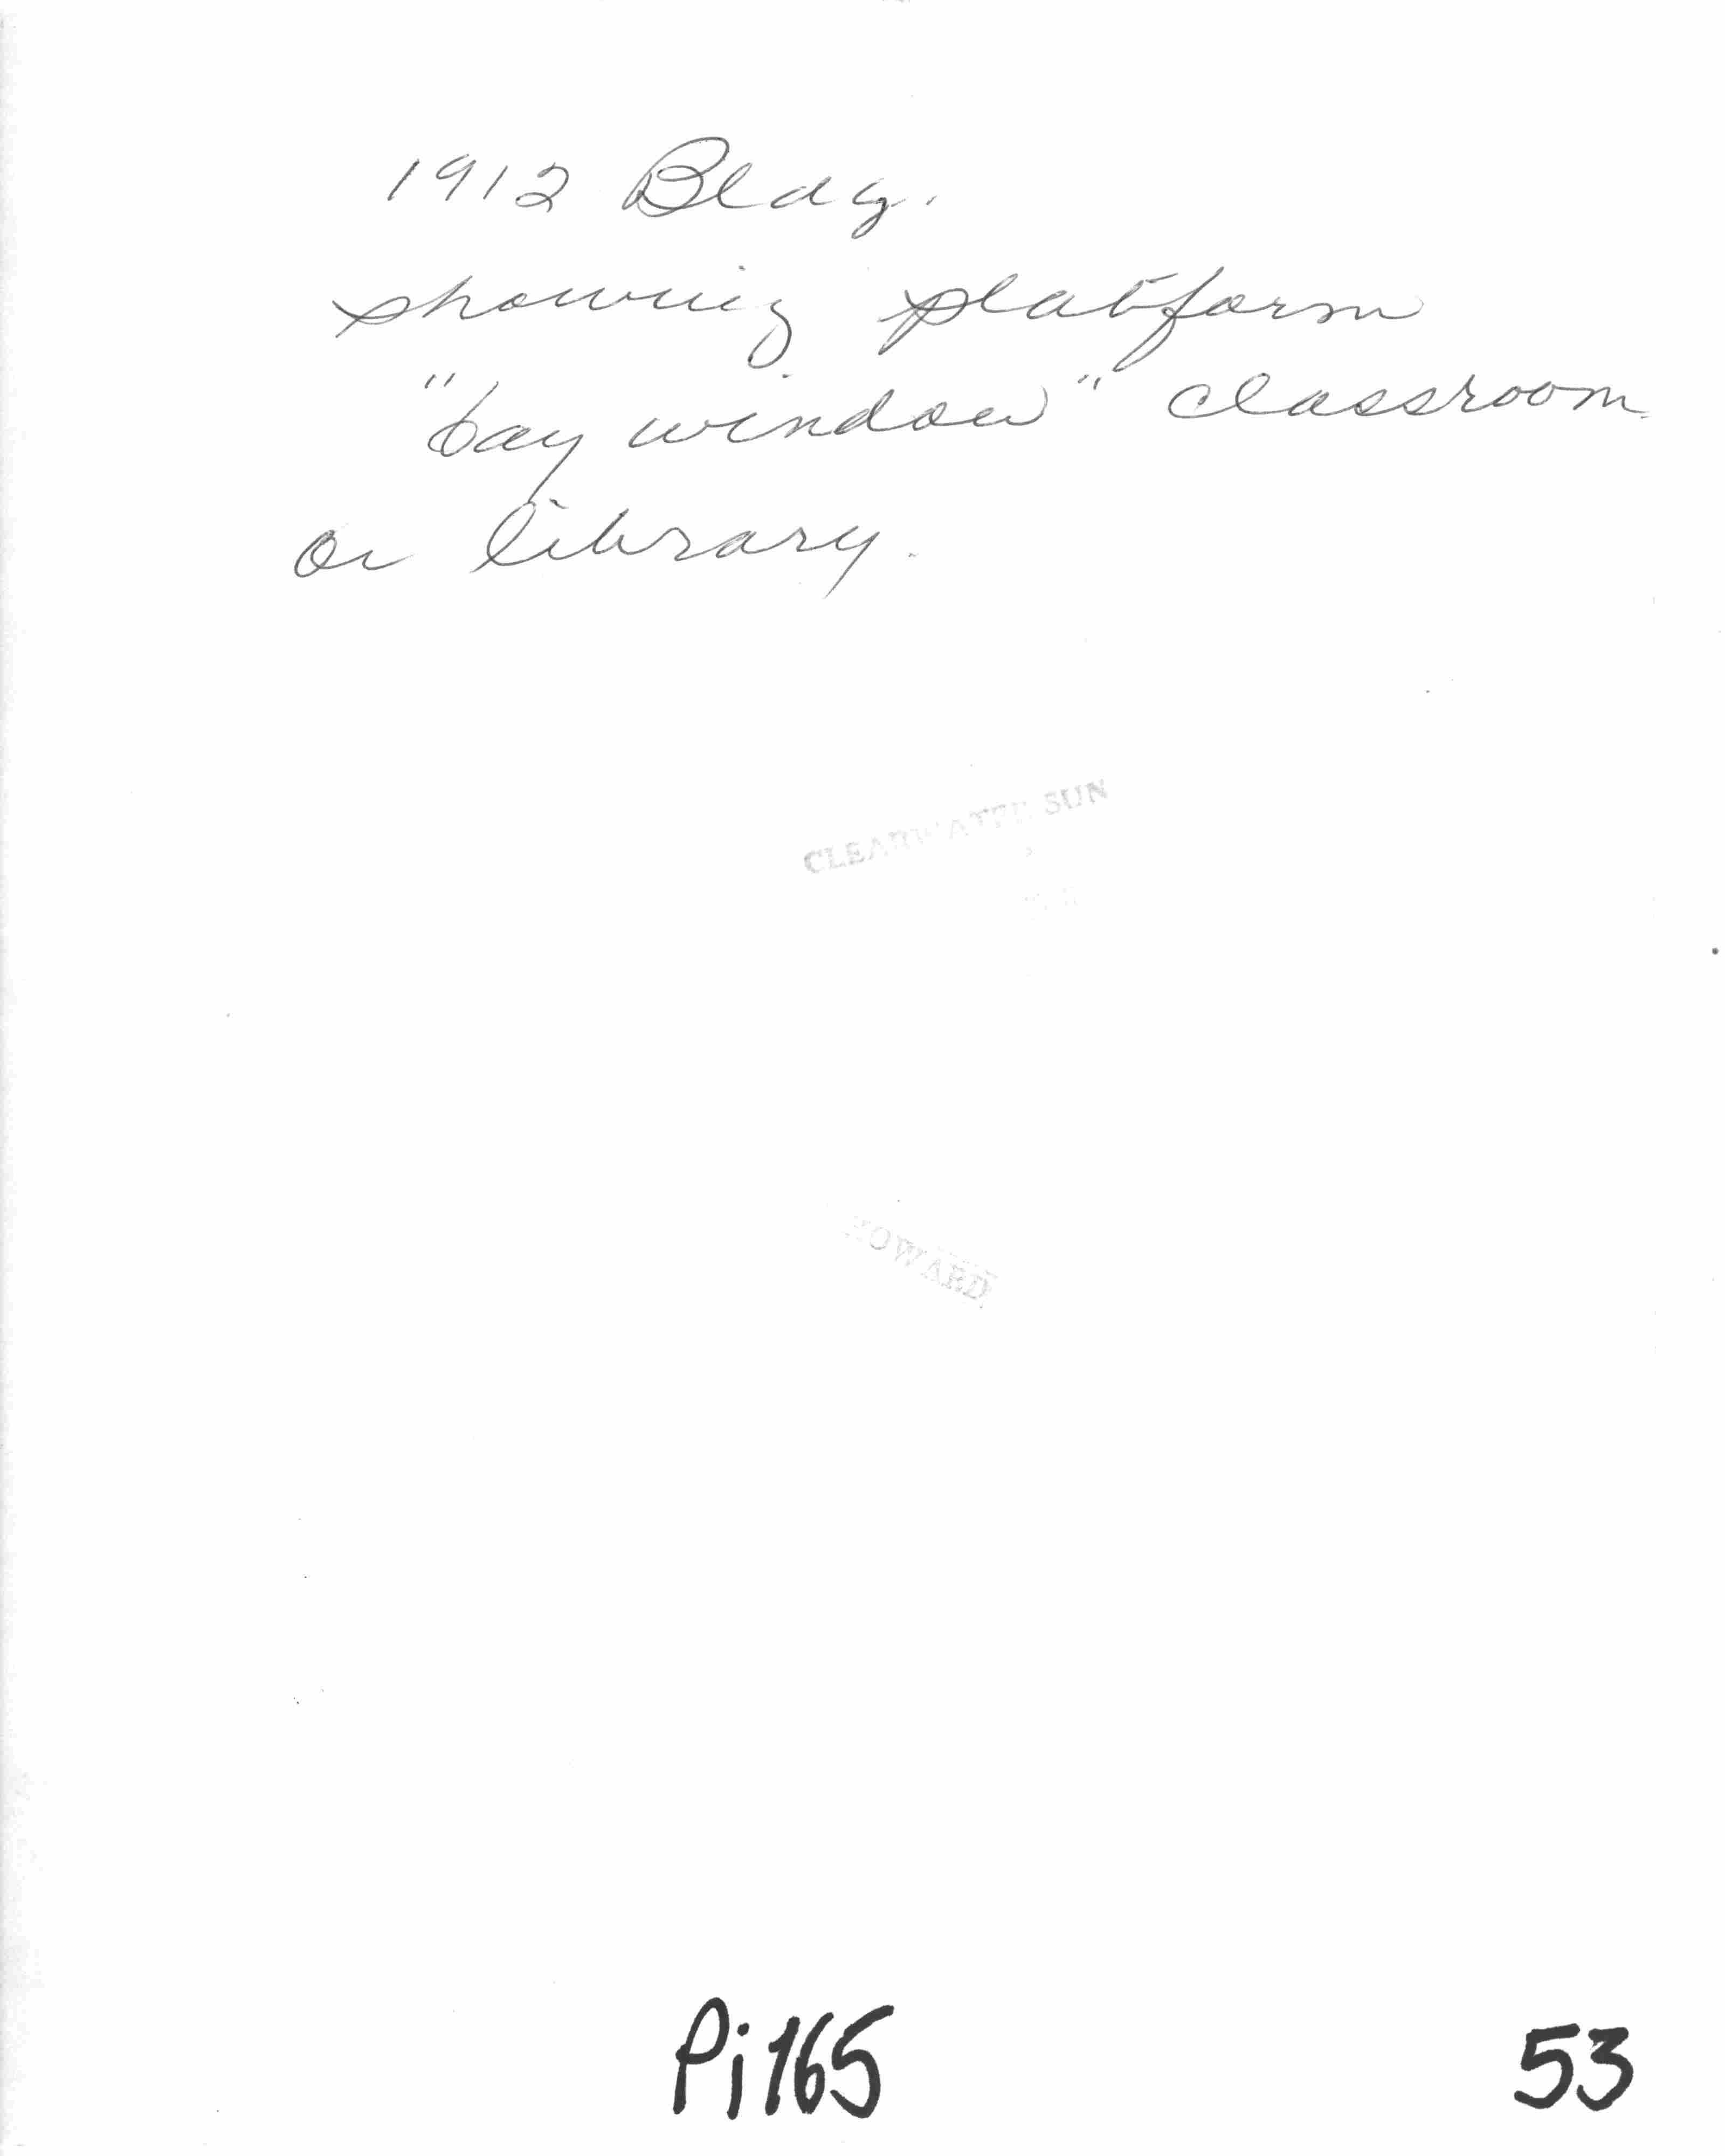 1912 Bldg.
showing platform
"bay window" classroom
or library.
CLEARWATER SUN
HOWARD
Pi165
53